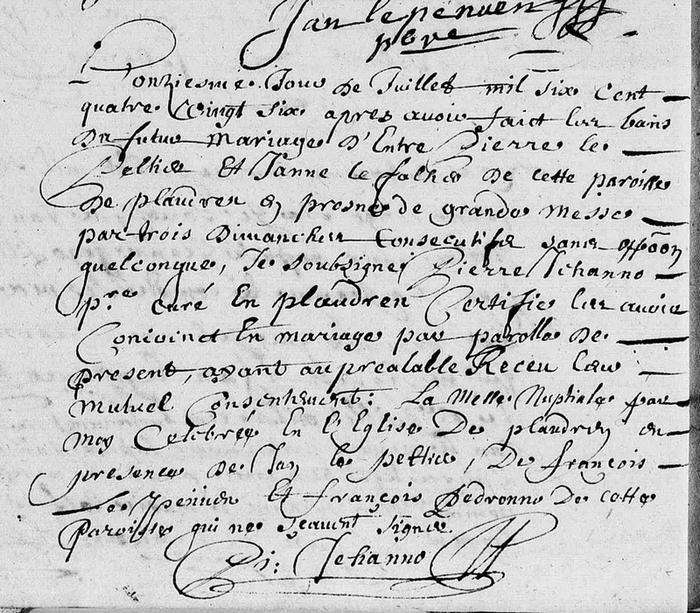 Jan le penven
pbre
L'onziesme Jour de Juillet mil six cent
quatre Vingt six apres avoir faict les bans
du futur mariage d'Entre Pierre le
Peltier Et Janne le falher de cette paroisse
de plaudren en prosne de grande messe
par trois dimanches Consecutifs sans oppoōn
quelconque, Je soubsigné Pierre Jehanno
pre. curé En plaudren Certifie les avoir
Conioinct En mariage par parolle de
present, ayant au prealable Receu leur
mutuel Consentement: La Messe Nuptiale par
moy Celebrée En l'Eglise De plaudren en
presence de Jan le peltier, De françois
Le penven Et françois Pedronno De cette
Paroisse qui ne sçavent signer
Pi: Jehanno